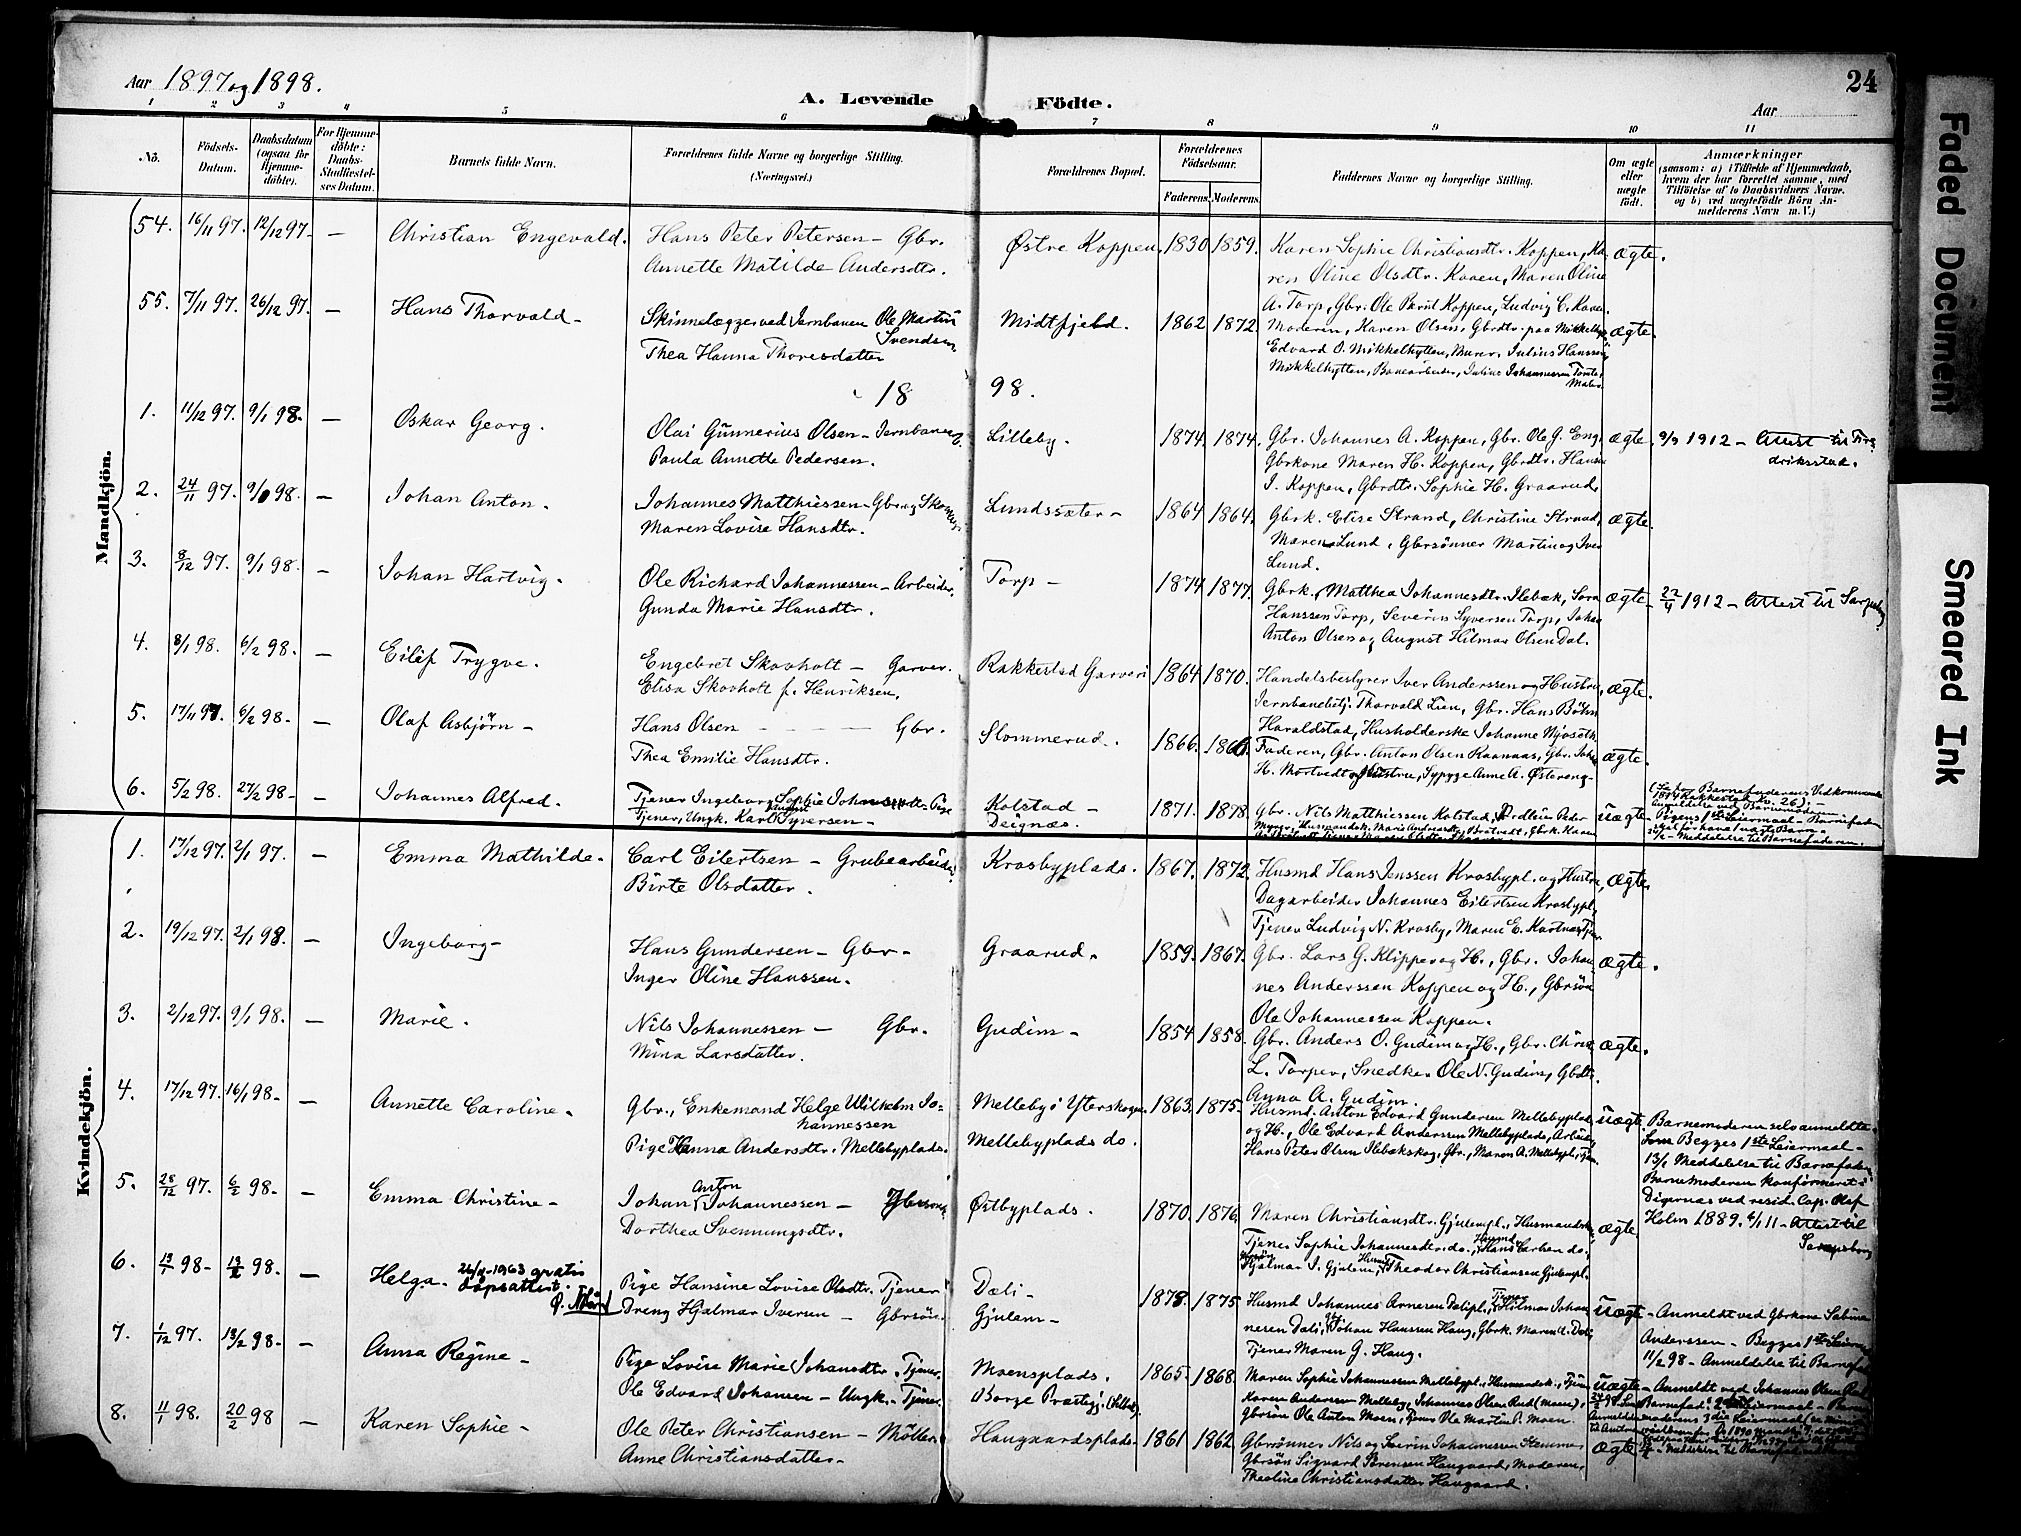 Aar 1897 og 1898.
A. Levende Födte.
Aar
24
1 2 3 4 5 6 7 8 9 10 11
No.
Födsels-Datum.
Daabsdatum (ogsaa for Hjemme-döbte).
For Hjemme-döbte: Daabs-Stadfæstel-ses Datum.
Barnets fulde Navn.
Forældrenes fulde Navne og borgerlige Stilling. (Næringsvei.)
Forældrenes Bopæl.
Forældrenes Födselsaar.
Faderens. Moderens.
Faddernes Navne og borgerlige Stilling.
Om ægte eller uægte födt.
Anmærkninger (saasom: a) i Tilfælde af Hjemmedaab, hvem der har forrettet samme, med Tilföielse af to Daabsvidners Navne, og b) ved uægtefödte Börn Anmelderens Navn m. V.)
Mandkjön.
54. 16/11 97. 12/12 97. — Christian Engevald. Hans Peter Petersen — Gbr. Østre Koppen. 1830 1859. Karen Sophie Christiansdtr. Koppen, Ka- ægte.
Annette Matilde Andersdtr. ren Oline Olsdtr. Kaaen, Maren Oline
55. 7/11 97. 26/12 97. — Hans Thorvald — Skinnelægger ved Jernbanen Ole Martin Svendsen Midtfjeld. 1862 1872 A. Torp, Gbr. Ole Berut Koppen, Ludvig C. Kaaen.
Thea Hanna Thoresdatter Moderen, Karen Olsen, Gbrdtr. paa Mikkelhyt. ægte.
Edvard O. Mikkelhytten, Murer, Julius Hanssen
Mikkelhytten, Banearbeider, Julius Johannessen Tomte, Maler
18 98.
1. 11/12 97. 9/1 98. — Oskar Georg. Olai Gunnerius Olsen — Jernbanearb. Lilleby. 1874. 1874. Gbr. Johannes A. Koppen, Gbr. Ole G. Eng, ægte. 9/9 1912 — Attest til Fre-
Paula Annette Pedersen. Gbrkone Maren H. Koppen, Gbrdtr. Hansine driksstad.
J. Koppen, Gbrdtr. Sophie H. Graarud.
2. 24/11 97. 9/1 98. — Johan Anton. Johannes Matthiessen — Gbr. og Skomager Lundssæter — 1864 1864. Gbrk. Elise Strand, Christine Strand, ægte.
Maren Lovise Hansdtr. Maren Lund, Gbrsönner Martin og Iver
Lund.
3. 8/12 97. 9/1 98. — Johan Hartvig. Ole Richard Johannessen — Arbeider, Torp — 1874 1877. Gbrk. Matthea Johannesdtr. Ilebæk, ægte. 22/4 1912 — Attest til Sarpsborg
Gunda Marie Hansdtr. Hanssen Torp, Severin Syversen Torp, Johan
Anton Olsen og August Hilmar Olsen Dal.
4. 8/1 98. 6/2 98. — Eilif Trygve. Engebret Skovholt — Garver. Rakkestad Garveri 1864 1870. Handelsbestyrer Iver Anderssen og Hustru, ægte.
Elisa Skovholt f. Henriksen. Jernbanebetj. Thorvald Lien, Gbr. Hans Böhn
5. 17/11 97 6/2 98. — Olaf Asbjörn — Hans Olsen — Gbr. Slommerud. 1866. 1866. Haraldstad, Husholderske Johanne Mjösoth.
Thea Emilie Hansdtr. Faderen, Gbr. Anton Olsen Raanaas, Gbr. Johs. ægte.
H. Mortvedt og Hustru, Sypige Anne A. Østereng.
6. 5/2 98. 27/2 98 — Johannes Alfred. Tjener Ingeborg Sophie Johannesdtr. Pige Kolstad — 1871. 1878. Gbr. Nils Matthiessen Kolstad, uægte
Tjener, Ungk. Karl August Syversen — Deignæs.
Kvindekjön.
1. 17/12 97. 2/1 97. — Emma Mathilde. Carl Eilertsen — Grubearbeider. Krosbyplads. 1867. 1872. Husmd. Hans Jenssen Krosbypl. og Hustru, ægte.
Birte Olsdatter. Dagarbeider Johannes Eilertsen Krosbypl.
Tjener Ludvig N. Krosby, Maren E. Kartnæs Tjen.
2. 19/12 97. 2/1 98. — Ingeborg — Hans Gundersen — Gbr. Graarud. 1859. 1867. Gbr. Lars G. Klipper og H., Gbr. Johan- ægte.
Inger Oline Hanssen. nes Anderssen Koppen og H., Gbrsön
Ole Johannessen Koppen.
3. 2/12 97. 9/1 98. — Marie. Nils Johannessen — Gbr. Gudim — 1854 1858. Gbr. Anders O. Gudim og H., Gbr. Christ. ægte.
Mina Larsdatter. L. Torper, Snedker Ole N. Gudim, Gbdtr.
Anna A. Gudim.
4. 17/12 97. 16/1 98. — Annette Caroline. Gbr., Enkemand Helge Wilhelm Jo-hannessen Mellebyö Yterskogen. 1863. 1875. Husmd. Anton Edvard Gundersen Mellebyplads uægte. Barnemoderen selv anmeldte.
Pige Hanna Andersdtr. Mellebyplads. Mellebyplads do. og H., Ole Edvard Anderssen Mellebyplads, Arbeider, som Begges 1ste Leiermaal —
Hans Peter Olsen Ilebækskog, Gbr., Maren A. Mellebypl., Tjen. 13/1 Meddelelse til Barnefaderen
Barnemoderen konfirmeret i
Digernæs ved resid. Cap. Olaf
Holm 1889. 6/1 11 — Attest til
Sarpsborg
5. 28/12 97. 6/2 98. — Emma Christine — Johan Anton Johannessen — Østbyplads. 1870. 1876. Maren Christiansdtr. Gjulempl., Husmandsk., ægte
Dorthea Svenningsdtr. Tjener Sophie Johannesdtr. do., Husmd. Hans Carlsen do.
Gbrsön Hjalmar J. Gjulem, Husmd. Theodor Christiansen Gjulempl.
6. 13/1 98 — 13/2 98. — Helga. 26/4-1963 gratis dåpsattest. Pige Hansine Lovise Olsdtr. Tjener Dæli — 1878. 1875 Husmd Johannes Arnesen Dælipl., Tjener Hilmar Johan- uægte — Anmeldt ved Gbrkone Sabine
Dreng Hjalmar Iversen — Gbrsön. Gjulem — nesen Dæli, Johan Hanssen Haug, Gbrk. Maren A. Dæli, Anderssen — Begges 1ste Leierm.
Tjener Maren G. Haug. 11/2 98 — Anmeldelse til Barnefad.
7. 1/12 97. 13/2 98. — Anna Regine — Pige Lovise Marie Johansdtr. Tjener. Moensplads. 1865. 1868. Maren Sophie Johannessen Mellebypl., Husmandsk., uægte — Anmeldt ved Johannes Olsen Rud
Ole Edvard Johansen — Ungk. Tjener. Borge Præstegj. Karen Andersen Melleby, Johannes Olsen Rud (Moen),
Gbrsön Ole Anton Moen, Ole Martin P. Moen.
8. 11/1 98. 20/2 98 — Karen Sophie — Ole Peter Christiansen — Möller. Haugaardsplads. 1861 1862. Gbrsönnes Nils og Severin Johannessen Stemme ægte
Anne Christiansdatter — Gbrsön Sigvard Sörensen Haugaard, Moderen,
Theoline Christiansdatter Haugaard.
Faded Document
Smeared Ink